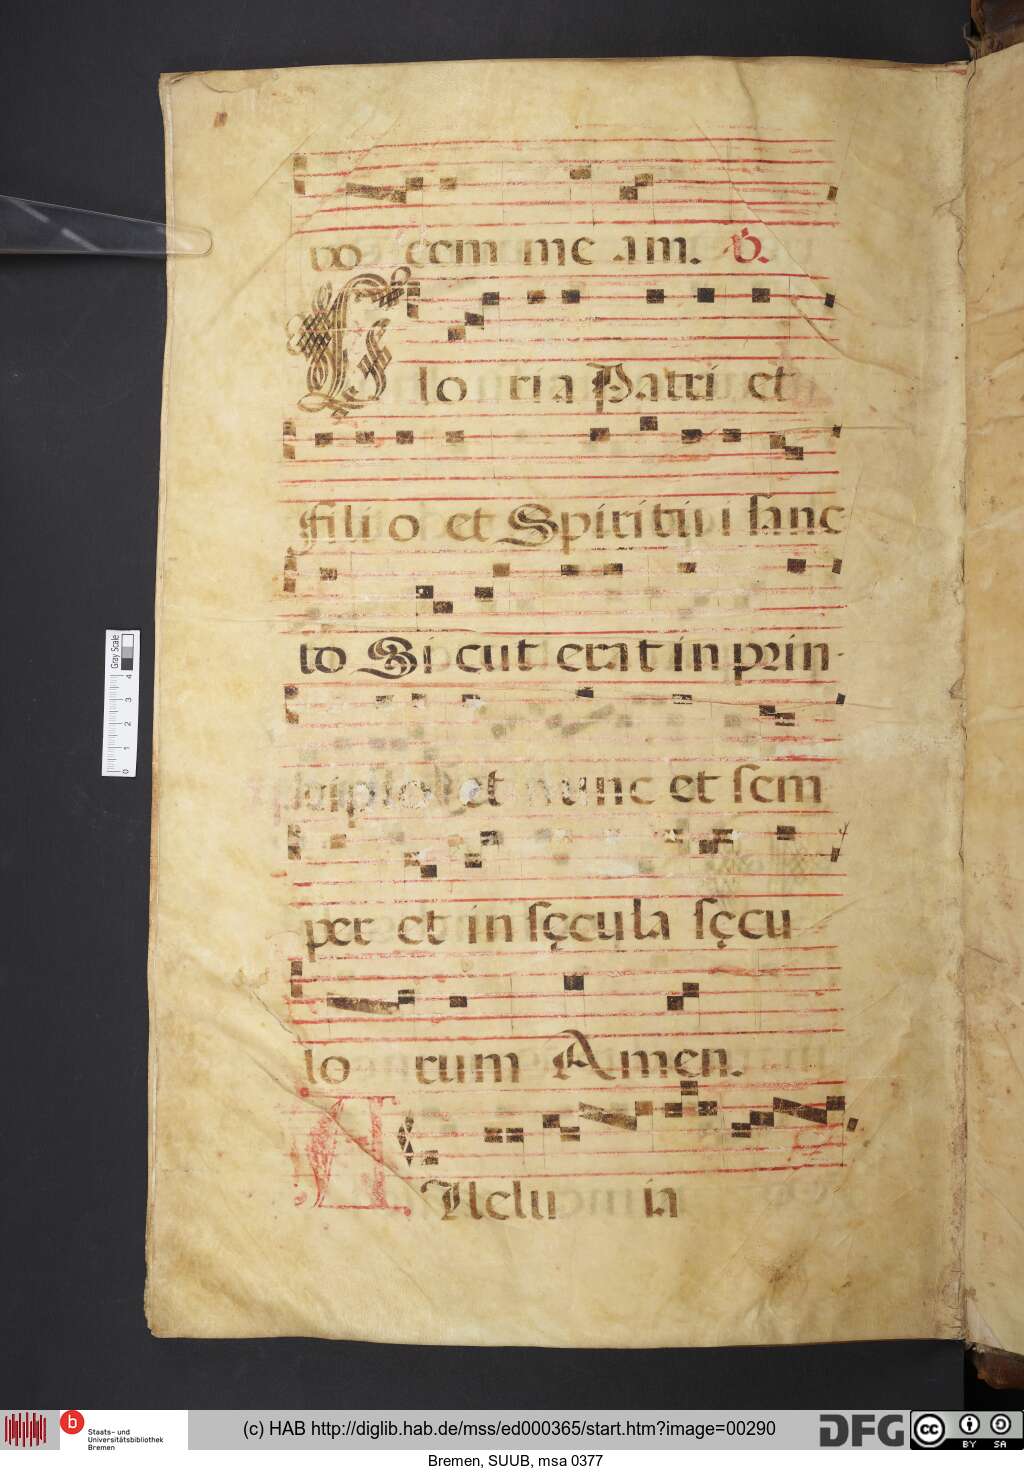 vo cem me am. ℣.
Glo ria Patri et
Filio et Spiritui sanc
to Si cut erat in prin-
cipio et nunc et sem
per et in sęcula sęcu
lo rum Amen.
A Alelu ia
Gray Scale
4
3
2
1
0
b
Staats- und
Universitätsbibliothek
Bremen
(c) HAB http://diglib.hab.de/mss/ed000365/start.htm?image=00290
DFG
cc BY SA
Bremen, SUUB, msa 0377